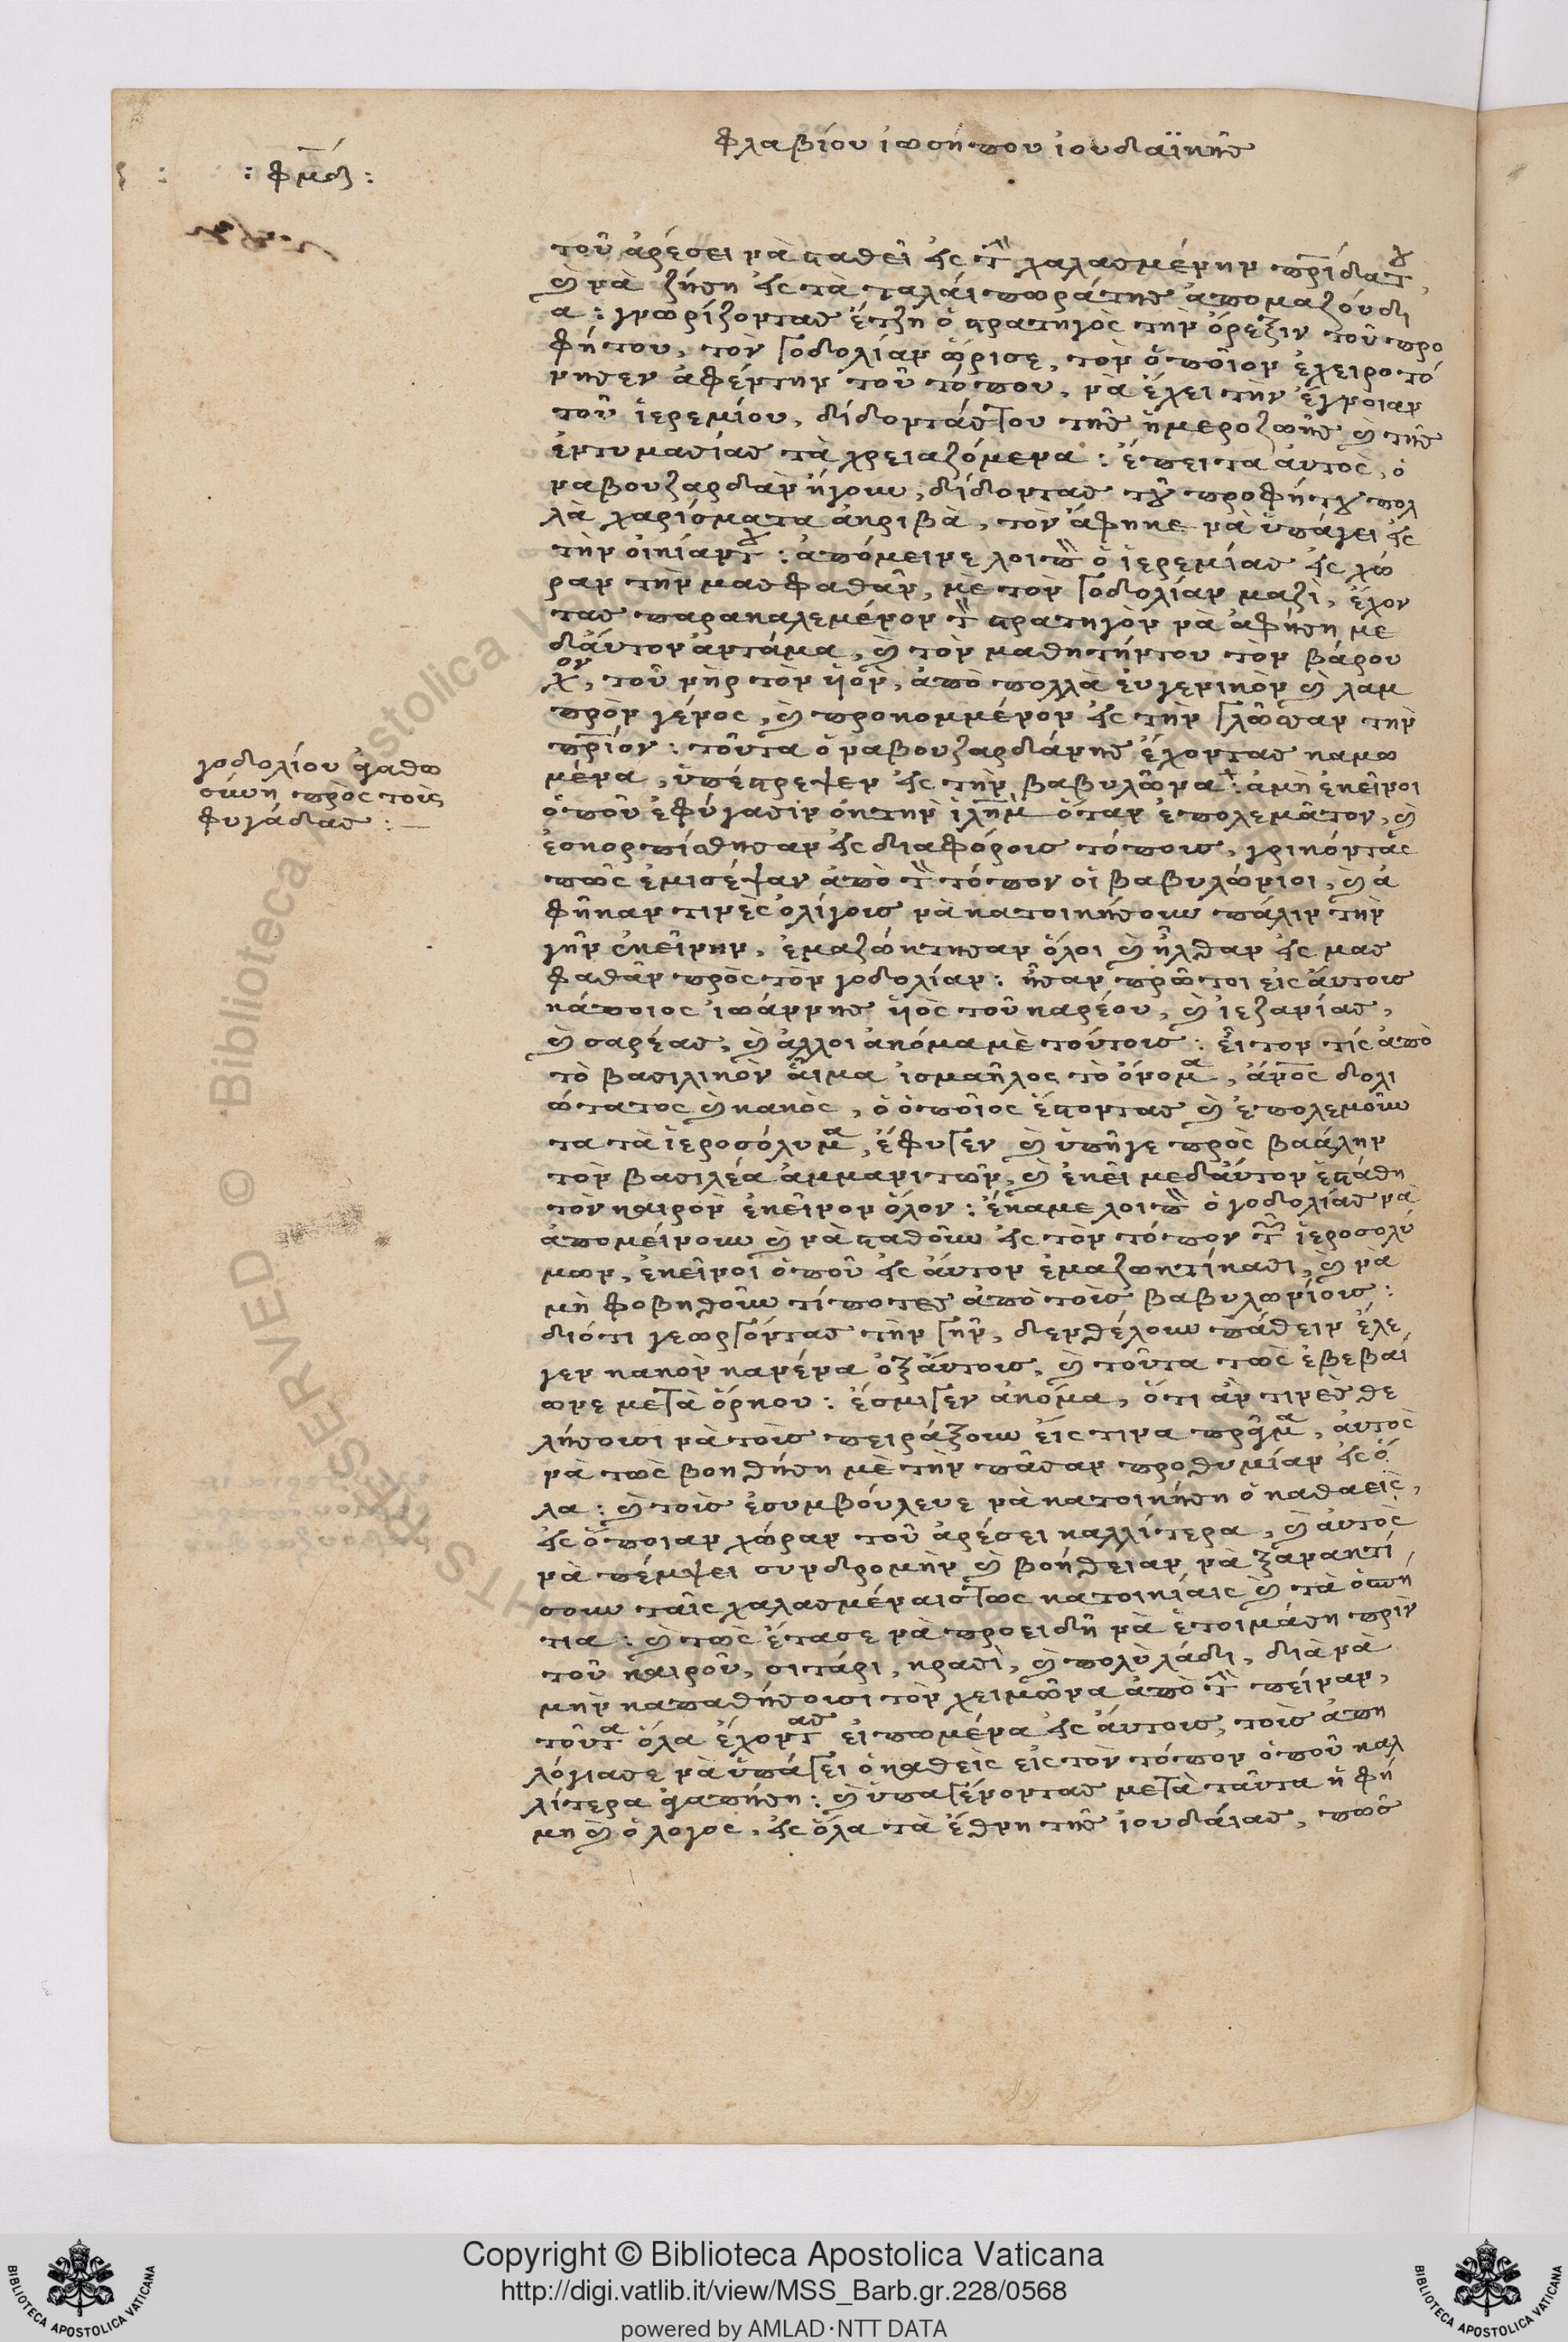 φλαβίου ἰωσήπου ἰουδαϊκῆς
: φμδ :
τοῦ ἀρέσει νὰ σταθεῖ εἰς τὴν χαλασμένην πατρίδατου,
καὶ νὰ ζήση εἰς τὰ ταλαίπωράτης ἀπομαζούδι
α : γνωρίζοντας ἔτζη ὁ στρατηγὸς τὴν ὄρεξιν τοῦ προ
φήτου, τὸν γοδολίαν ὥρισε, τὸν ὁποῖον ἐχειροτό
νησεν ἀφέντην τοῦ τόπου, νὰ ἔχει τὴν ἔγνοιαν
τοῦ ἱερεμίου, δίδοντάςτου τῆς ἡμεροζωῆς καὶ τῆς
ἐντυμασίας τὰ χρειαζόμενα : ἔπειτα αὐτὸς, ὁ
ναβουζαρδὰν ἤγουν, δίδοντας τοῦ προφήτου πολ
λὰ χαρίσματα ἀκριβὰ, τὸν ἄφηκε νὰ ὑπάγει εἰς
τὴν οἰκίαντου : ἀπόμεινε λοιπὸν ὁ ἱερεμίας εἰς χώ
ραν τὴν μασφαθὰν, μὲ τὸν γοδολίαν μαζὶ, ἔχον
τας παρακαλεμένον τὸν στρατηγὸν νὰ ἀφήση με
δαύτον ἀντάμα, καὶ τὸν μαθητήντου τὸν βάρου
χον, τοῦ νὴρ τὸν ὑὸν, ἀπὸ πολλὰ εὐγενικὸν καὶ λαμ
πρὸν γένος, καὶ προκομμένον εἰς τὴν γλῶσσαν τὴν
πατρίον : τοῦτα ὁ ναβουζαρδάνης ἔχοντας καμω
μένα, ὑπέστρεψεν εἰς τὴν βαβυλῶνα : ἀμὴ ἐκεῖνοι
ὁποῦ ἐφύγασιν ὀκτὴν ἱλημ ὅταν ἐπολεμᾶτον, καὶ
ἐσκορπίσθησαν εἰς διαφόροις τόποις, γρικόντας
πῶς ἐμισέψαν ἀπὸ τὸν τόπον οἱ βαβυλώνιοι, καὶ ἀ
φῆκαν τινὲς ὀλίγοις νὰ κατοικήσουν πάλιν τὴν
γῆν ἐκείνην, ἐμαζώκτησαν ὅλοι καὶ ἦλθαν εἰς μασ
φαθὰν πρὸς τὸν γοδολίαν : ἦσαν πρῶτοι εἰς αὐτοις
κάποιος ἰωάννης ὑὸς τοῦ καρέου, καὶ ἰεζανίας,
καὶ σαρέας, καὶ ἄλλοι ἀκόμα μὲ τούτοις : εἶτον τὶς ἀπὸ
τὸ βασιλικὸν αἷμα ἰσμαῆλος τὸ ὄνομα, ἄνος δολι
ώτατος καὶ κακὸς, ὁ ὁποῖος ἔστοντας καὶ ἐπολεμοῦν
τα τὰ ἱεροσόλυμα, ἔφυγεν καὶ ὑπῆγε πρὸς βαάλην
τὸν βασιλέα ἀμμανιτῶν, καὶ ἐκεῖ μεδαύτον ἐστάθη
τὸν καιρὸν ἐκεῖνον ὅλον : ἔκαμε λοιπὸν ὁ γοδολίας νὰ
ἀπομείνουν καὶ νὰ σταθοῦν εἰς τὸν τόπον τῶν ἱεροσολύ
μων, ἐκεῖνοι ὁποῦ εἰς αὐτον ἐμαζωκτίκασι, καὶ νὰ
μὴ φοβηθοῦν τίποτες ἀπὸ τοὶς βαβυλωνίοις :
διότι γεωργόντας τὴν γῆν, δενθέλουν πάθειν ἔλε
γεν κακὸν κανένα ὀξαύτοις, καὶ τοῦτα τῶς ἐβεβαί
ωνε μετὰ ὅρκου : ἔσμιγεν ἀκόμα, ὅτι ἂν τινὲς θε
λήσουσι νὰ τοὶς πειράξουν εἴς τινα πράγμα, ἀυτὸς
νὰ τῶς βοηθήση μὲ τὴν πᾶσαν προθυμίαν εἰς ὅ
λα : καὶ τοὶς ἐσυμβούλευε νὰ κατοικήση ὁ καθαεὶς,
εἰς ὅποιαν χώραν τοῦ ἀρέσει καλλίτερα, καὶ ἀυτὸς
νὰ πέμψει συνδρομὴν καὶ βοήθειαν νὰ ξανακτί
σουν ταῖς χαλασμέναιςτως κατοικίαις καὶ τὰ ὁσπή
τια : καὶ τῶς ἔτασε νὰ προειδῆ νὰ ἑτοιμάση πρὶν
τοῦ καιροῦ, σιτάρι, κρασὶ, καὶ πολὺ λάδι, διὰ νὰ
μὴν καπαθήσουσι τὸν χειμῶνα ἀπὸ τὴν πείναν,
τοῦτα ὅλα ἔχοντας εἰπωμένα εἰς αὐτοις, τοὶς ἀπη
λόγιασε νὰ ὑπάγει ὁ καθεὶς εἰς τὸν τόπον ὁποῦ καλ
λίτερα ἀγαπήση : καὶ ὑπαγένοντας μετὰ ταῦτα ἡ φή
μη καὶ ὁ λόγος, εἰς ὅλα τὰ ἔθνη τῆς ἰουδαίας, πῶς
γοδολίου ἀγαθω
σύνη πρὸς τοὺς
φυγάδας : —
Copyright © Biblioteca Apostolica Vaticana
http://digi.vatlib.it/view/MSS_Barb.gr.228/0568
powered by AMLAD·NTT DATA
BIBLIOTECA APOSTOLICA VATICANA
BIBLIOTECA APOSTOLICA VATICANA